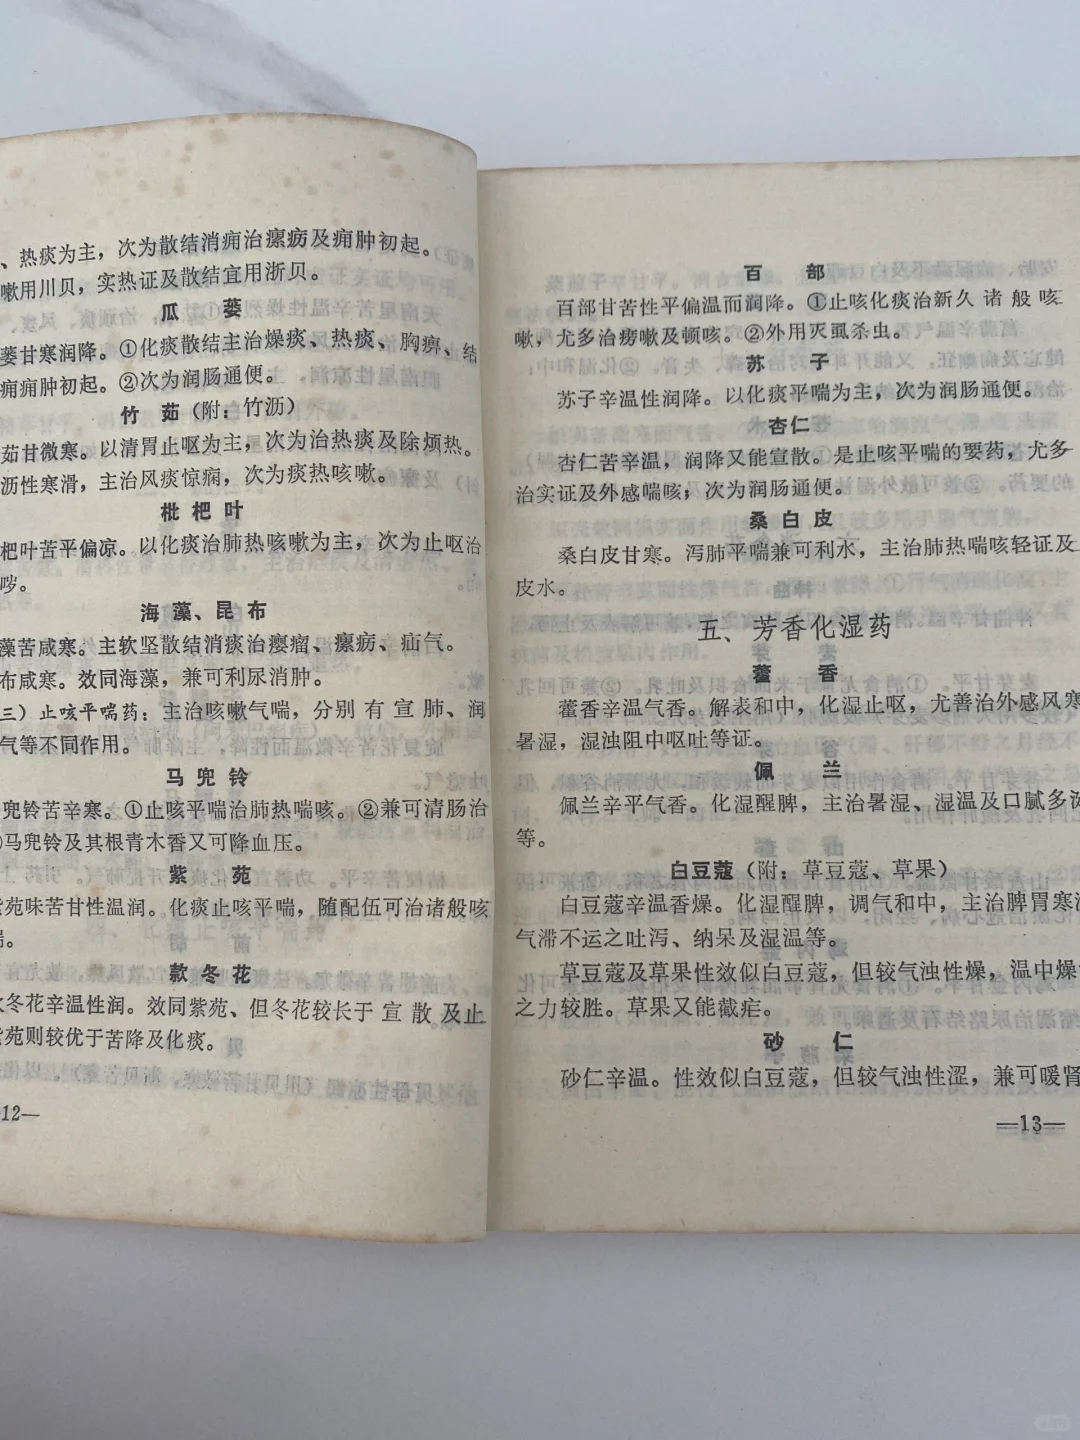 、热痰为主，次为散结消痈治瘰疬及痈肿初起。
嗽用川贝，实热证及散结宜用浙贝。
瓜 蒌
蒌甘寒润降。①化痰散结主治燥痰、热痰、胸痹、结
痈痈肿初起。②次为润肠通便。
竹 茹（附：竹沥）
茹甘微寒。以清胃止呕为主，次为治热痰及除烦热。
沥性寒滑，主治风痰惊痫，次为痰热咳嗽。
枇杷叶
杷叶苦平偏凉。以化痰治肺热咳嗽为主，次为止呕治
哕。
海藻、昆布
藻苦咸寒。主软坚散结消痰治瘿瘤、瘰疬、疝气。
布咸寒。效同海藻，兼可利尿消肿。
三）止咳平喘药：主治咳嗽气喘，分别有宣肺、润
气等不同作用。
马兜铃
兜铃苦辛寒。①止咳平喘治肺热喘咳。②兼可清肠治
马兜铃及其根青木香又可降血压。
紫 苑
苑味苦甘性温润。化痰止咳平喘，随配伍可治诸般咳
。
款冬花
冬花辛温性润。效同紫苑、但冬花较长于宣散及止
苑则较优于苦降及化痰。
12—
百 部
百部甘苦性平偏温而润降。①止咳化痰治新久诸般咳
嗽，尤多治痨嗽及顿咳。②外用灭虱杀虫。
苏 子
苏子辛温性润降。以化痰平喘为主，次为润肠通便。
杏仁
杏仁苦辛温，润降又能宣散。是止咳平喘的要药，尤多
治实证及外感喘咳；次为润肠通便。
桑白皮
桑白皮甘寒。泻肺平喘兼可利水，主治肺热喘咳轻证及
皮水。
五、芳香化湿药
藿 香
藿香辛温气香。解表和中，化湿止呕，尤善治外感风寒
暑湿，湿浊阻中呕吐等证。
佩 兰
佩兰辛平气香。化湿醒脾，主治暑湿、湿温及口腻多
等。
白豆蔻（附：草豆蔻、草果）
白豆蔻辛温香燥。化湿醒脾，调气和中，主治脾胃寒湿
气滞不运之吐泻、纳呆及湿温等。
草豆蔻及草果性效似白豆蔻，但较气浊性燥，温中燥
之力较胜。草果又能截疟。
砂 仁
砂仁辛温。性效似白豆蔻，但较气浊性涩，兼可暖肾
—13—